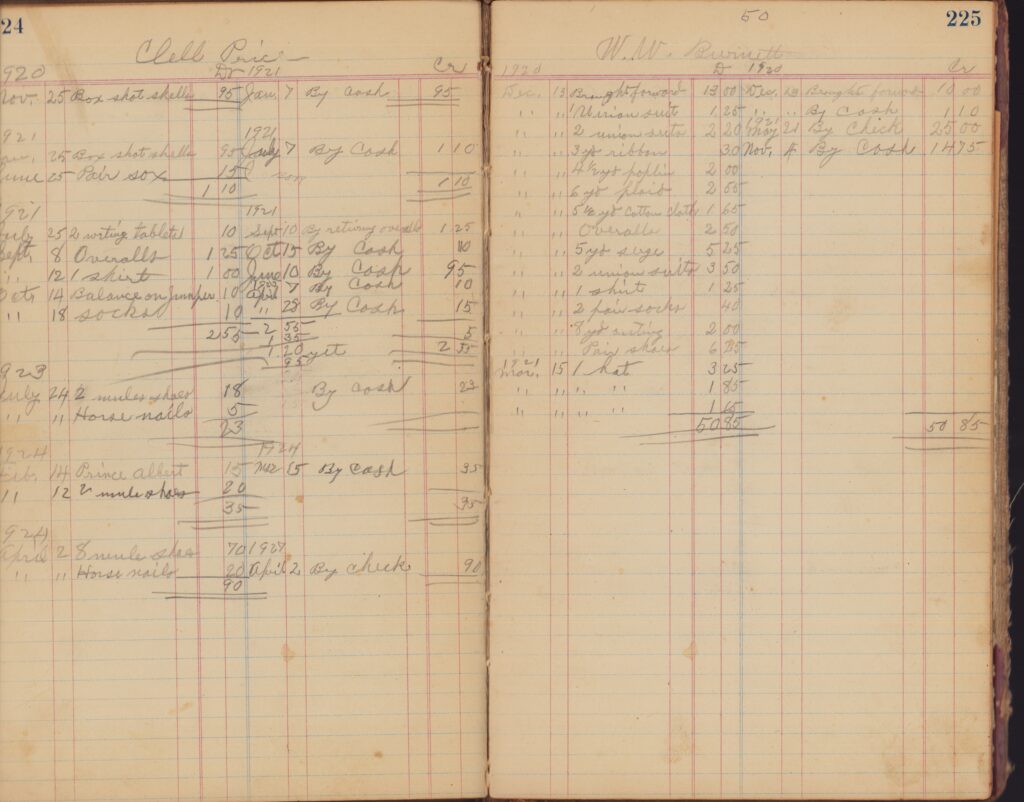 24
Clell Price
Dr 1921 Cr
1920
Nov. 25 Box shot shells 95 Jan. 7 By Cash 95
1921 1921
Jan. 25 Box shot shells 95 July 7 By Cash 1 10
June 25 Pair sox 15
1 10 1 10
1921 1921
July 25 2 writing tablets 10 Sept 10 By retiring overalls 1 25
Sept. 8 Overalls 1 25 Oct 15 By Cash 10
" 12 1 shirt 1 00 June 10 By Cash 95
Oct. 14 Balance on Jumper 10 April 7 By Cash 10
" 18 socks 10 " 28 By Cash 15
2 55 2 55 5
1 35
1 20 yet 2 55
95
1923
July 24 2 mules shoes 18 By Cash 23
" " Horse nails 5
23
1924 1924
Feb. 14 Prince Albert 15 15 By Cash 35
11 12 2 mule shoes 20
35 35
1924
April 2 8 mule shoes 70 1924
" " Horse nails 20 April 2 By check 90
90
50
225
W. W. Burnett
1920 D 1920 Cr
Dec. 13 Brought forward 13 00 Dec. 13 Brought forward 10 00
" " 1 Union suit 1 25 " " By Cash 1 10
" " 2 union suits 2 20 1921 May 21 By Check 25 00
" " 3 yd ribbon 30 Nov. 4 By Cash 14 75
" " 4 1/2 yd poplin 2 00
" " 6 yd plaid 2 55
" " 5 1/2 yd Cotton Cloth 1 65
" " Overalls 2 50
" " 5 yd serge 5 25
" " 2 union suits 3 50
" " 1 shirt 1 25
" " 2 pair socks 40
" " 8 yd outing 2 00
" " Pair shoes 6 25
1921
Mar. 15 1 hat 3 25
" " " " 1 85
" " " " 1 15
50 85 50 85